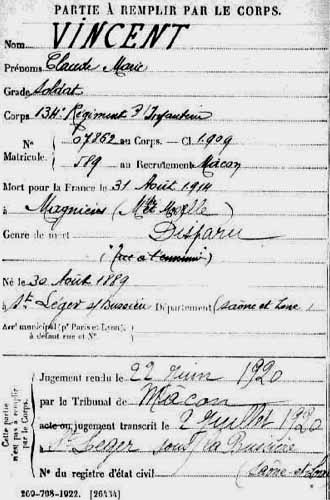 PARTIE À REMPLIR PAR LE CORPS.
Nom VINCENT
Prénoms Claude Marie
Grade Soldat
Corps 134e Régiment d'Infanterie
N° 07862 au Corps. — Cl. 1909
Matricule. 589 au Recrutement Mâcon
Mort pour la France le 31 Août 1914
à Magnières (Mthe Moselle)
Genre de mort Disparu
(face à l'ennemi)
Né le 30 Août 1889
à St Léger s/ Bussière Département (Saône et Loire)
Arrt municipal (pr Paris et Lyon),
à défaut rue et N°.
Cette partie
n'est pas à remplir
par le Corps.
Jugement rendu le 22 Juin 1920
par le Tribunal de Mâcon
acte ou jugement transcrit le 2 Juillet 1920
à St Léger sous la Bussière
N° du registre d'état civil (Saône et Loire)
269-708-1922. [26434]